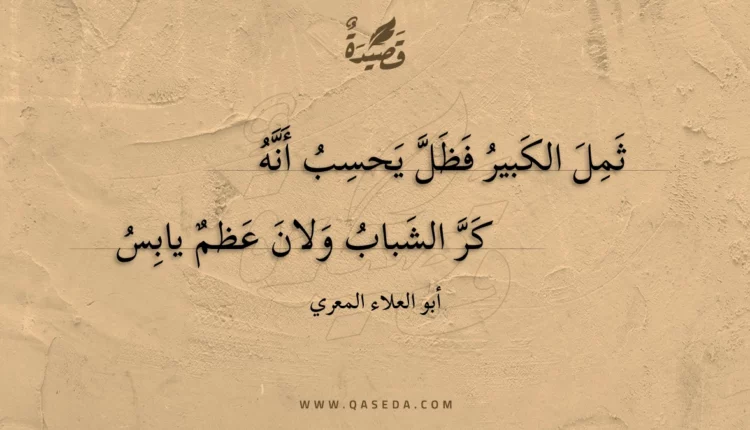 قَصِيدَةٌ
ثَمِلَ الكَبيرُ فَظَلَّ يَحسِبُ أَنَّهُ
كَرَّ الشَبابُ وَلانَ عَظمٌ يابِسُ
أبو العلاء المعري
WWW.QASEDA.COM